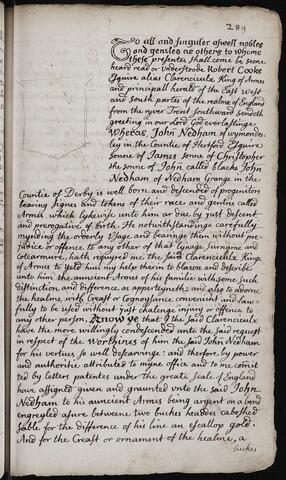 289
To all and singuler aswell nobles
and gentles as others to whome
these presentes shall come be seene
heard read or Understoode Robert Cooke
Esquire alias Clarencieulx King of Armes
and principall herald of the East West
and South partes of the realme of England
from the ryver Trent Southward sendeth
greeting in our Lord God everlastinge.
Wheras, John Nedham of wymonde-
ley in the Countie of Hertford Esquire
sonne of James sonne of Christopher
the sonne of John called blacke John
Nedham, of Nedham Grange in the
Countie of Derby is well born and descended of progenitors
bearing signes and tokens of their race and genire called
Armes which lykewise unto him ar due by just descent
and prerogative of birth. He notwithstandinge carefully
mynding the orderly Usage and bearinge them without pre-
judice or offence to any other of that lynage, surname and
coatearmure, hath requyred me the said Clarencieulx King
of Armes to yeld him my help therin to blazen and describe
unto him the auncient Armes of his familie with some such
distinction and difference, as apperteyneth: and also to adorne
the healme, with Creast or Cognoysance convenient and law-
fully to be used without just chalenge, injury or offence to
any other person. Know ye that I the said Clarencieulx
have the more willingly condescended unto the said request
in respect of the Worthines of him the said John Nedham
for his vertues, so well deserving: and therfore by power
and authoritie attributed to myne office and to me comit-
ted by letters patentes under the greate seale of England
have assigned given and graunted unto the said John
Nedham to his auncient Armes being argent on a bend
engreyled asure betweene two buckes heades caboshed
sable for the difference of his line an escallop gold.
And for the Creast or ornament of the healme, a
buckes